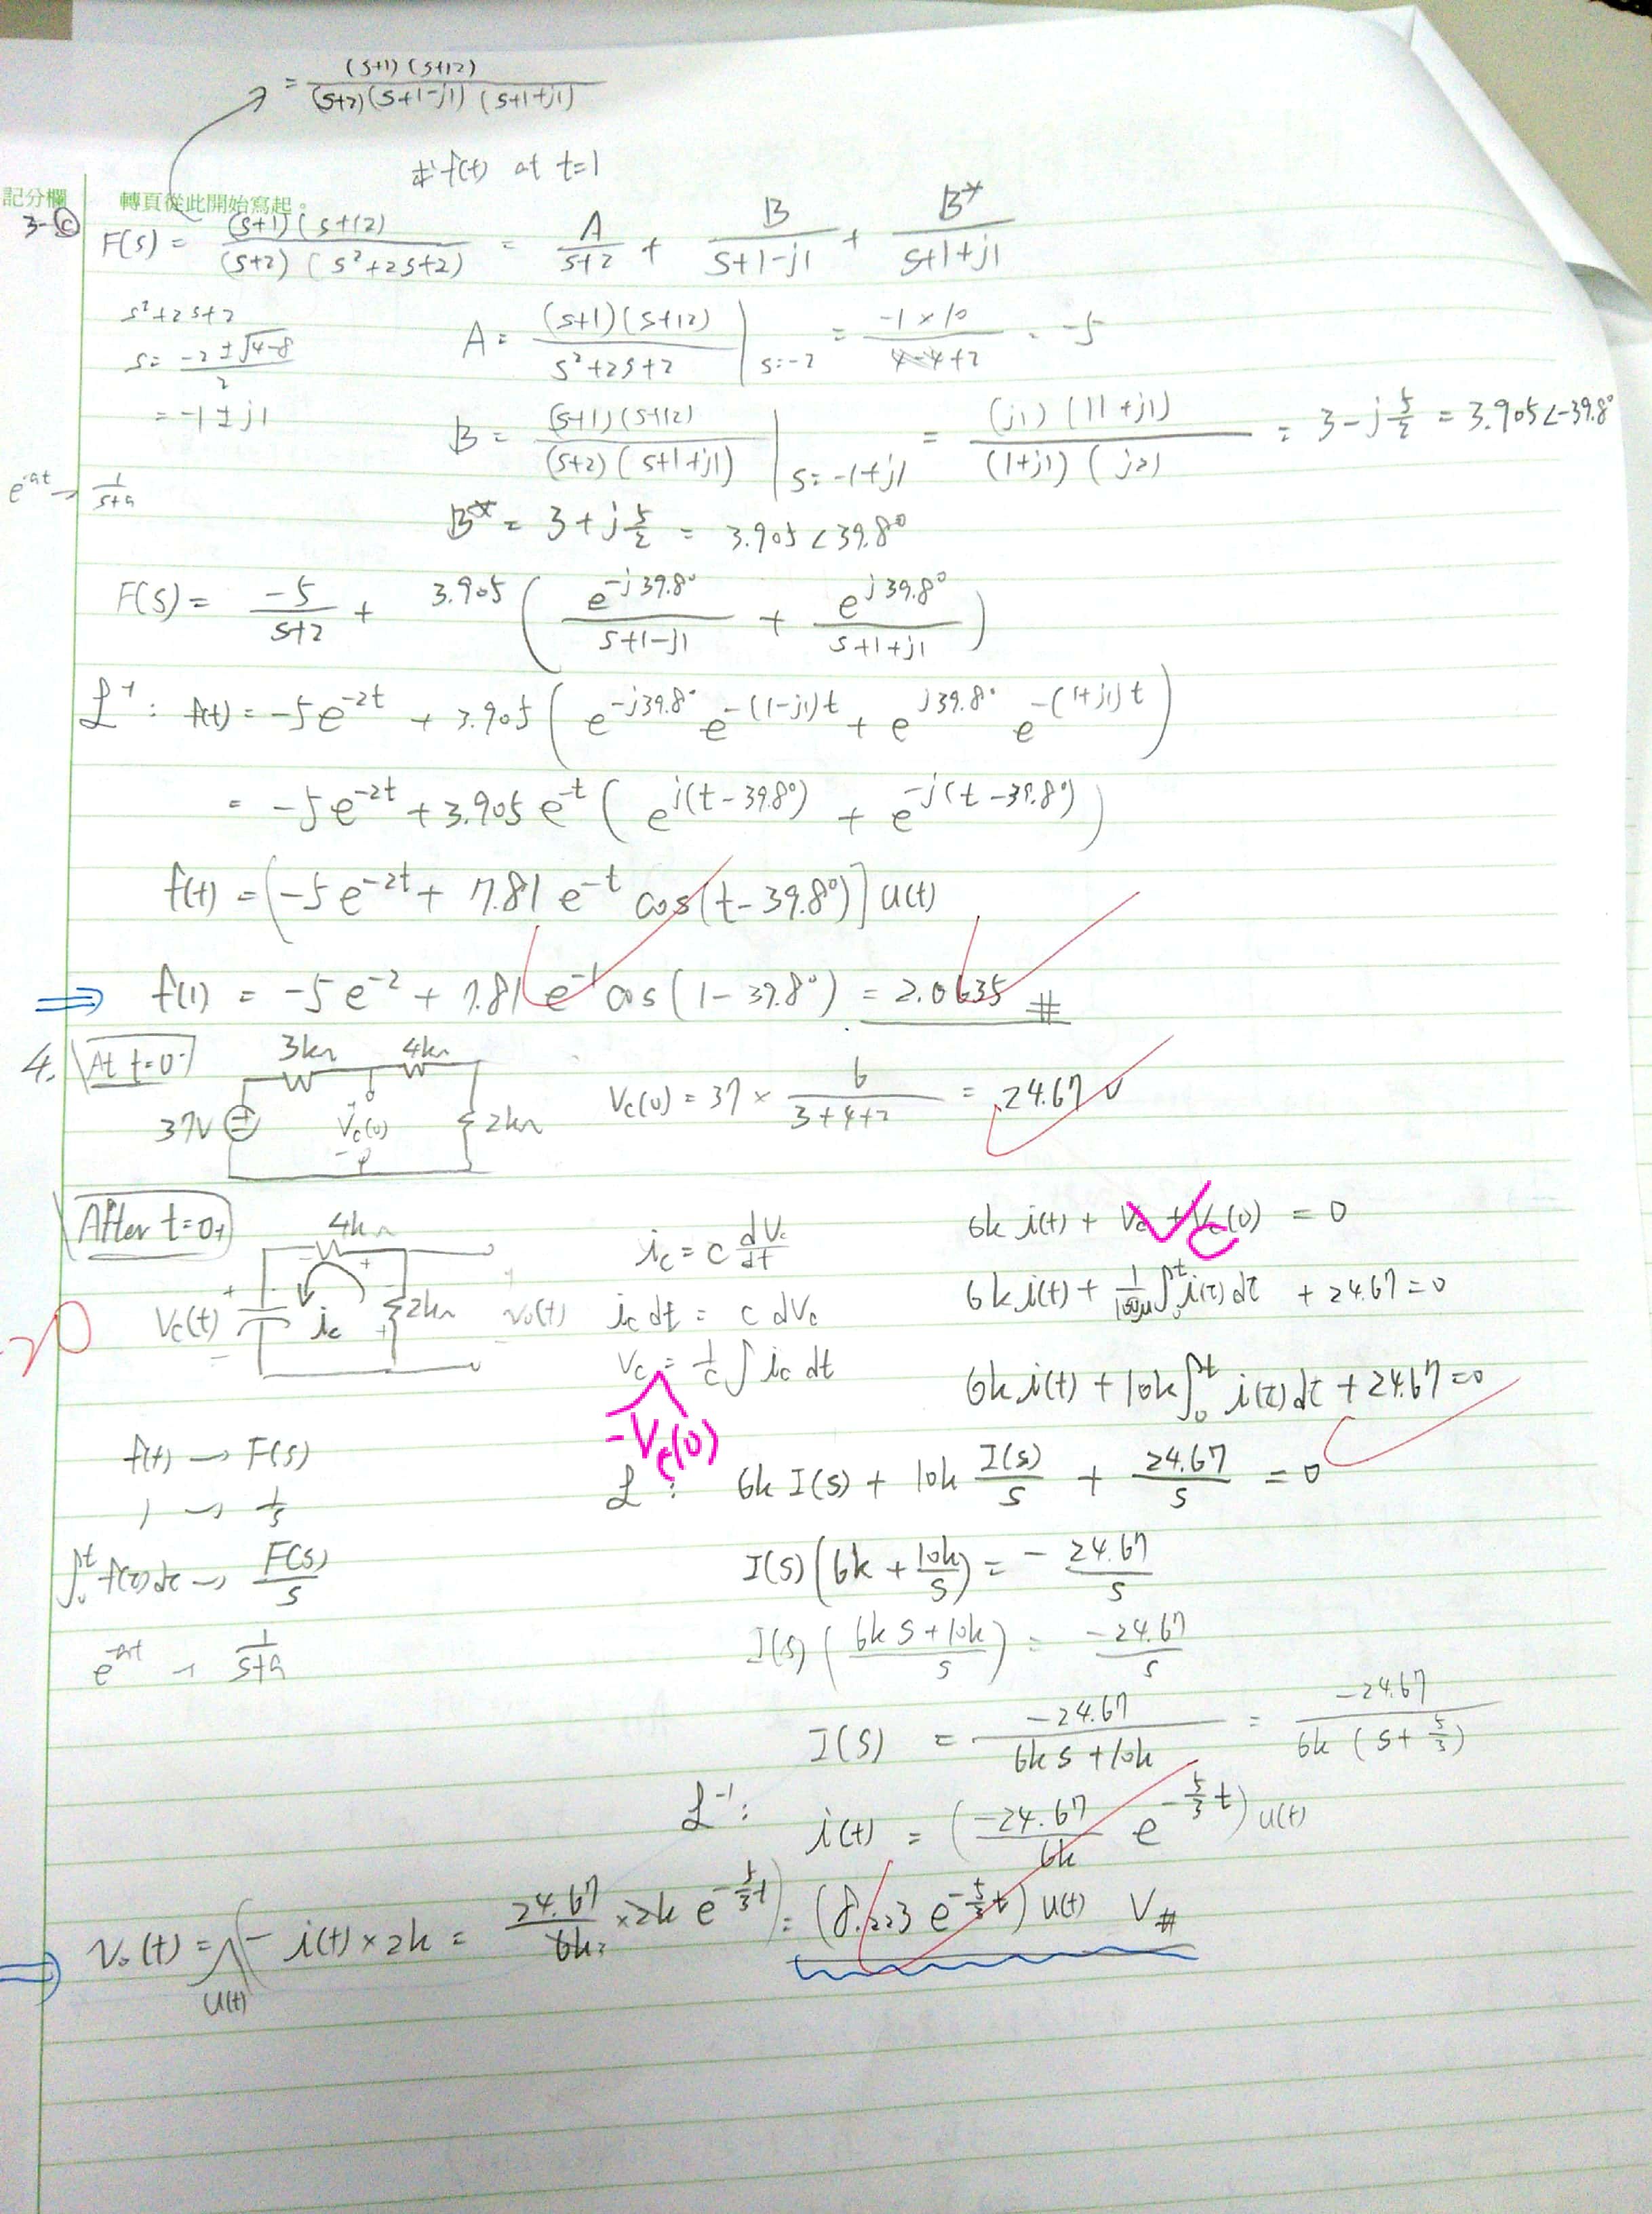 = (s+1)(s+12) / (s+2)(s+1-j1)(s+1+j1)
求 f(t) at t=1
記分欄 轉頁從此開始寫起。
3-ⓒ F(s) = (s+1)(s+12) / (s+2)(s²+2s+2) = A / s+2 + B / s+1-j1 + B* / s+1+j1
s²+2s+2
s = -2 ± √4-8 / 2
= -1 ± j1
A = (s+1)(s+12) / s²+2s+2 | s=-2 = -1×10 / 4-4+2 = -5
B = (s+1)(s+12) / (s+2)(s+1+j1) | s=-1+j1 = (j1)(11+j1) / (1+j1)(j2) = 3-j 5/2 = 3.905∠-39.8°
e^-at → 1 / s+a
B* = 3+j 5/2 = 3.905∠39.8°
F(s) = -5 / s+2 + 3.905 ( e^-j39.8° / s+1-j1 + e^j39.8° / s+1+j1 )
ℒ⁻¹: f(t) = -5e^-2t + 3.905 ( e^-j39.8° e^-(1-j1)t + e^j39.8° e^-(1+j1)t )
= -5e^-2t + 3.905 e^-t ( e^j(t-39.8°) + e^-j(t-39.8°) )
f(t) = [-5e^-2t + 7.81 e^-t cos(t-39.8°)] u(t)
⇒ f(1) = -5e^-2 + 7.81 e^-1 cos(1-39.8°) = 2.0635 #
4. At t=0⁻
3kΩ 4kΩ
37V + Vc(0) - 2kΩ
Vc(0) = 37 × 6 / 3+4+2 = 24.67 V
After t=0+
4kΩ
Vc(t) + - ic 2kΩ + vo(t) -
-20
ic = c dVc / dt
ic dt = c dVc
Vc = 1/c ∫ ic dt
-Vc(0)
6k i(t) + Vc + Vc(0) = 0
Vc
6k i(t) + 1/100μ ∫₀^t i(τ)dτ + 24.67 = 0
6k i(t) + 10k ∫₀^t i(τ)dτ + 24.67 = 0
f(t) → F(s)
1 → 1/s
∫₀^t f(τ)dτ → F(s) / s
e^-at → 1 / s+a
ℒ: 6k I(s) + 10k I(s)/s + 24.67/s = 0
I(s) (6k + 10k/s) = - 24.67/s
I(s) ( 6k s+10k / s ) = -24.67 / s
I(s) = -24.67 / 6k s+10k = -24.67 / 6k (s+5/3)
ℒ⁻¹: i(t) = ( -24.67 / 6k e^-5/3 t ) u(t)
⇒ vo(t) = (- i(t) × 2k = 24.67 / 6k × 2k e^-5/3 t) = (8.223 e^-5/3 t) u(t) V #
u(t)